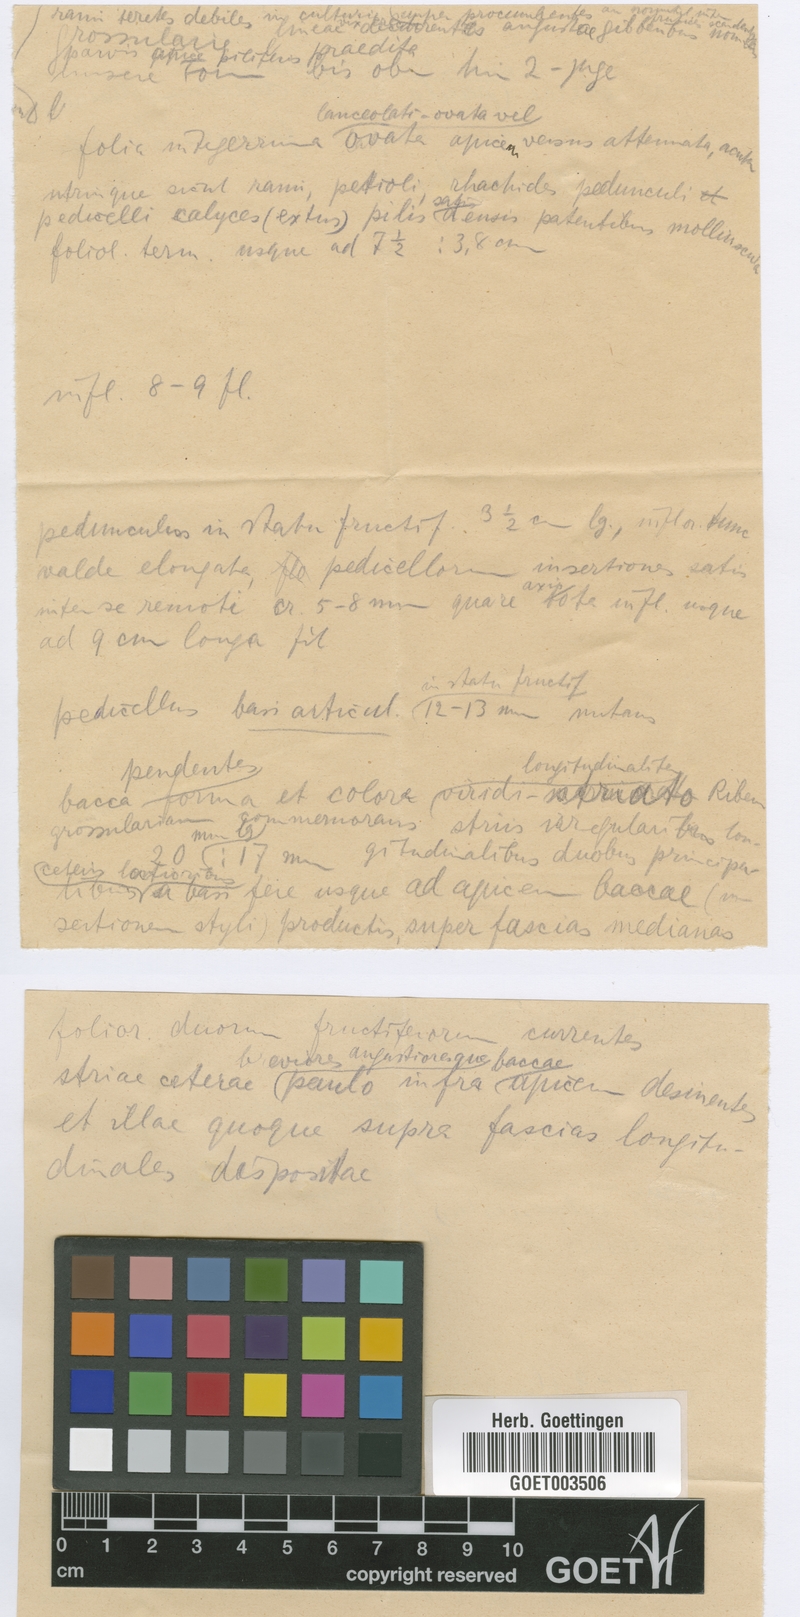 rami teretes debiles in cultura semper procumbentes an
grossularie lineae decurrentes angustae gibberibus
parvis apice piliferis praedita
bis
lanceolati-ovata vel
folia integerrima ovata apicem versus attenuata, acuta
utrinque sicut rami, petioli, rhachides pedunculi et
satis
pedicelli calyces (extus) pilis densis patentibus
foliol. term. usque ad 7 1/2 : 3,8 cm
infl. 8-9 fl.
pedunculus in statu fructif. 3 1/2 cm lg., inflor. tunc
valde elongata, flo pedicellorum insertiones satis
axis
inter se remoti cr. 5-8 mm quare tota infl. usque
ad 9 cm longa fit
in statu fructif
pedicellus basi articul. 12-13 mm nutans
pendentes longitudinaliter
bacca forma et colore viridi- striato Ribem
grossulariam commemorans striis irregularibus lon-
mm lg
20 : 17 mm gitudinalibus duobus principa-
ceteris
libus a basi fere usque ad apicem baccae (in-
sertionem styli) productis, super fascias medianas
folior. duorum fructiferorum currentes
breviores angustioresque baccae
striae ceterae paulo infra apicem desinentes
et illae quoque supra fascias longitu-
dinales dispositae
Herb. Goettingen
GOET003506
0 1 2 3 4 5 6 7 8 9 10
cm copyright reserved GOET